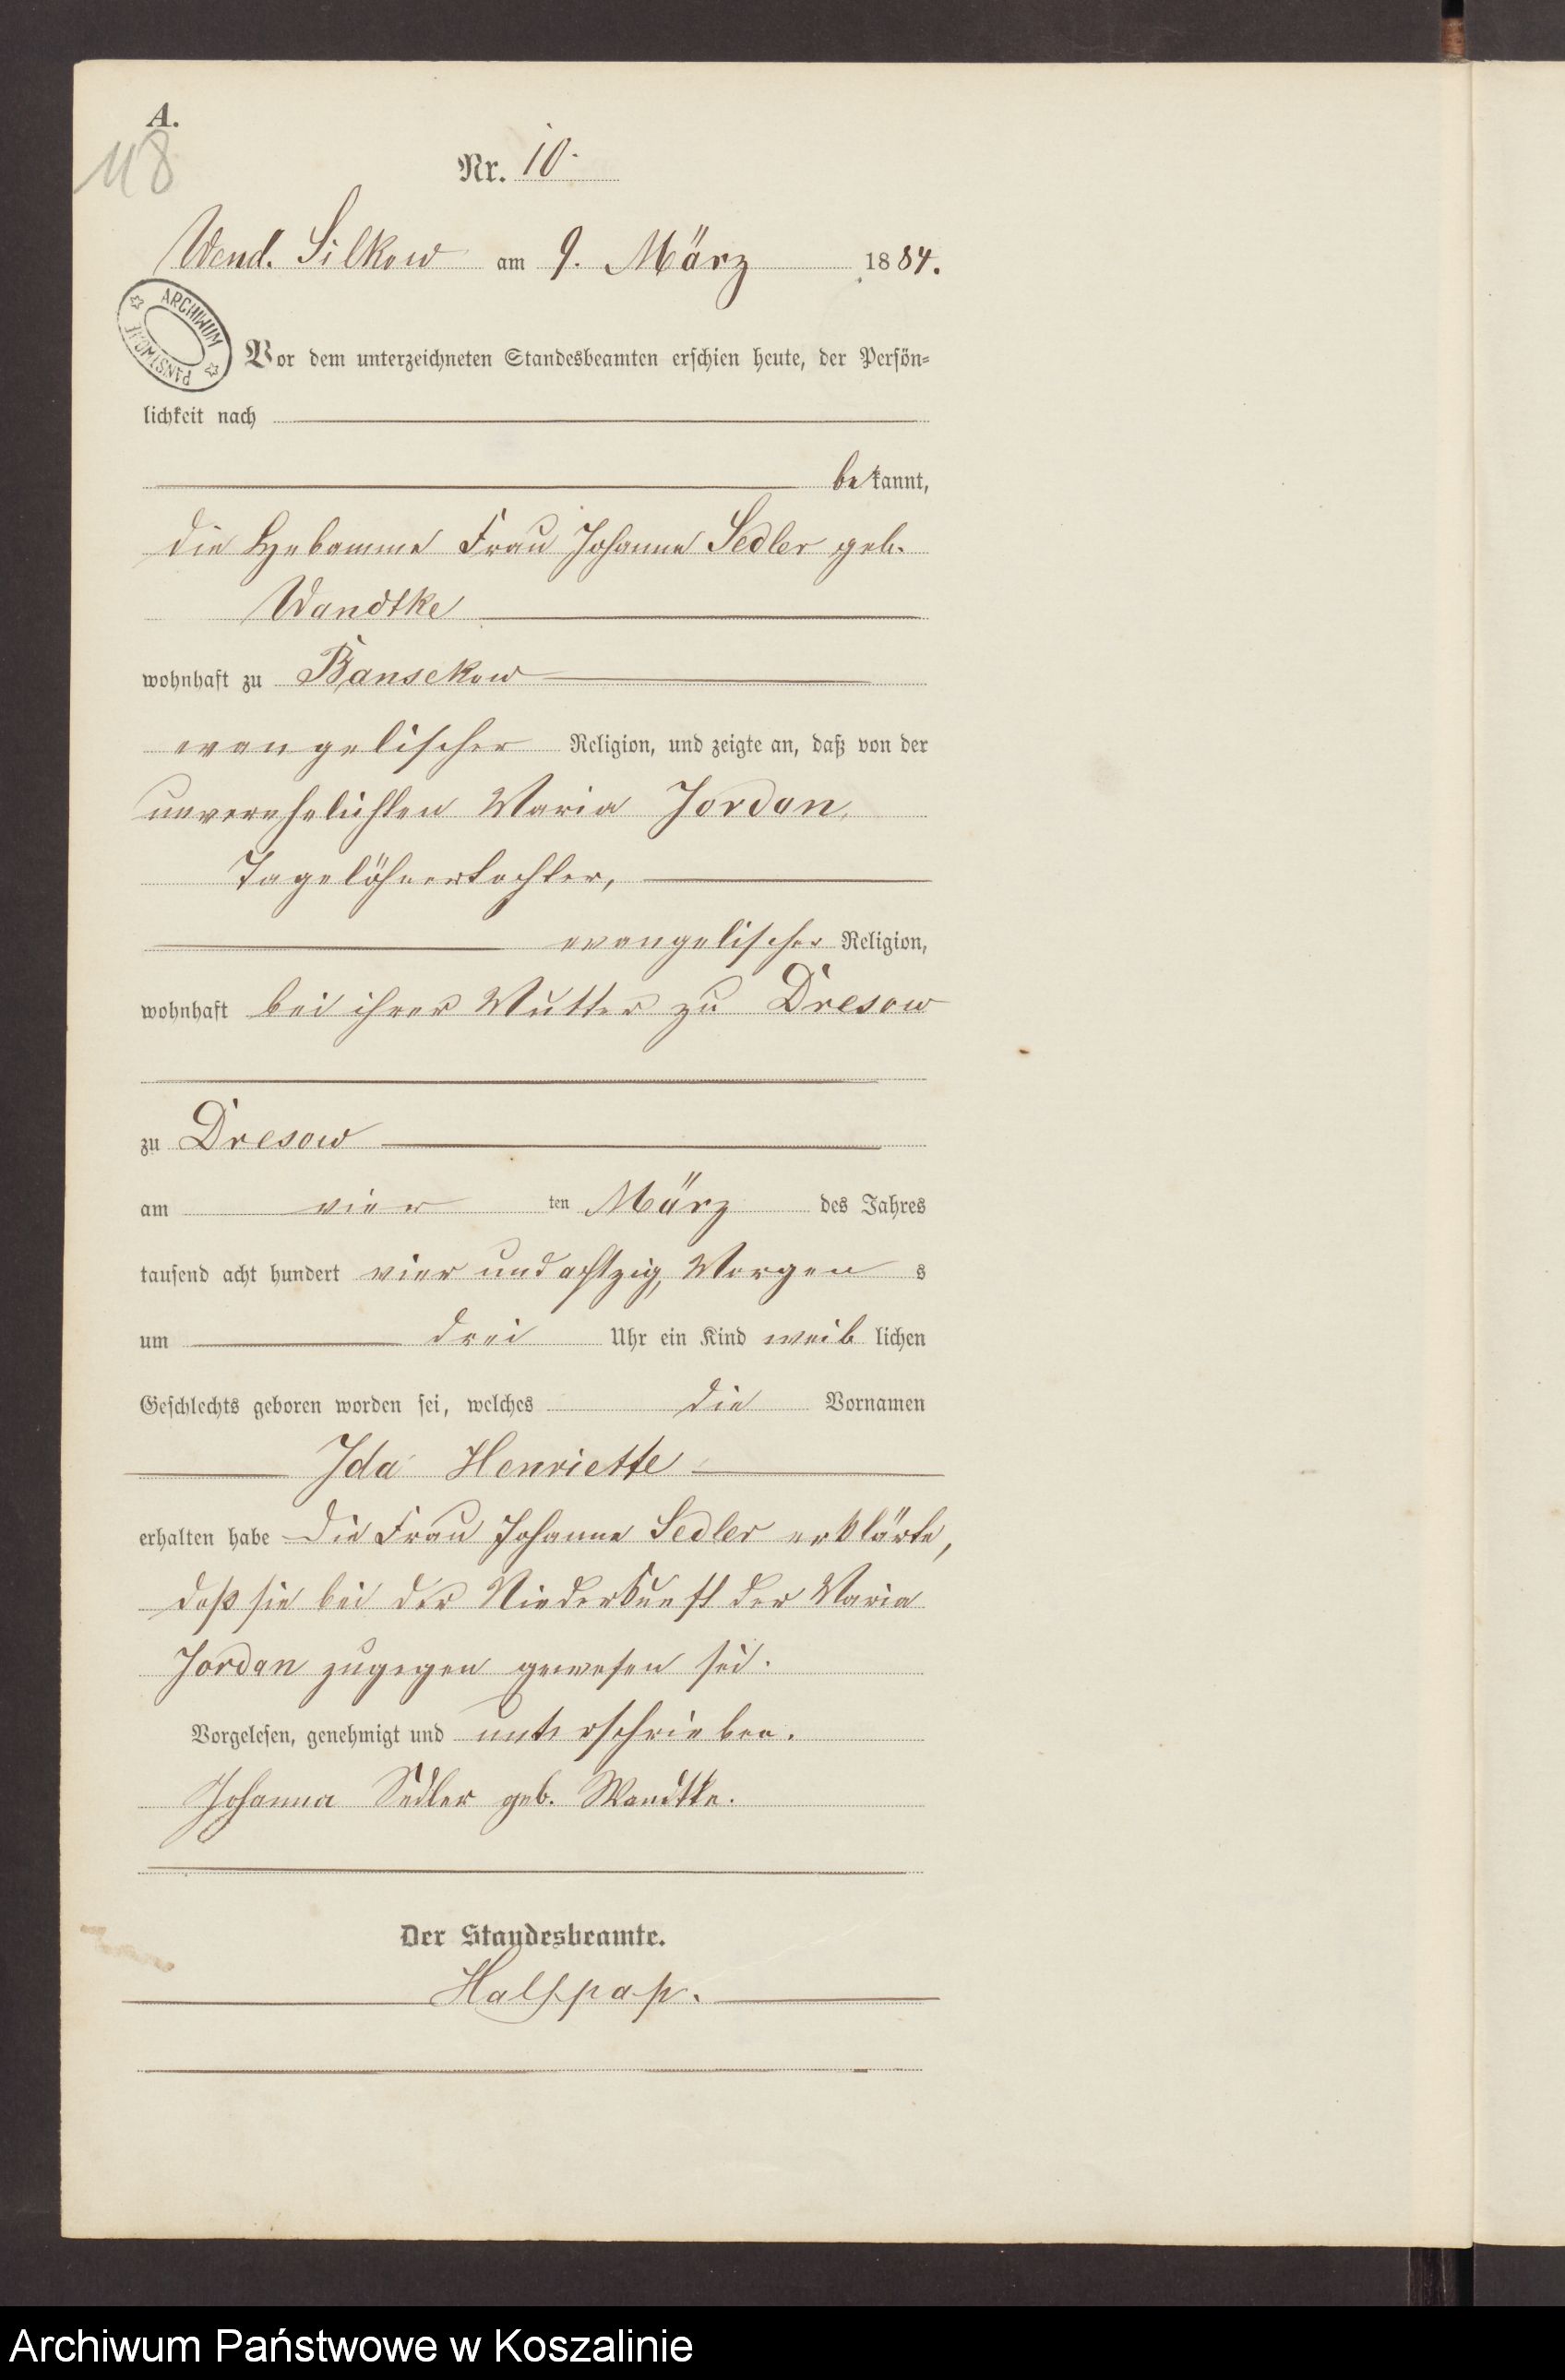 A.
118
Nr. 10.
Wend. Silkow am 9. März 1884.
ARCHIWUM PAŃSTWOWE
Vor dem unterzeichneten Standesbeamten erschien heute, der Persön-
lichkeit nach
bekannt,
die Hebamme Frau Johanne Sedler geb.
Wandtke
wohnhaft zu Bansekow
evangelischer Religion, und zeigte an, daß von der
unverehelichten Maria Jordan,
Tagelöhnertochter,
evangelischer Religion,
wohnhaft bei ihrer Mutter zu Dresow
zu Dresow
am vier ten März des Jahres
tausend acht hundert vier und achtzig, Morgens
um drei Uhr ein Kind weiblichen
Geschlechts geboren worden sei, welches die Vornamen
Ida Henriette
erhalten habe Die Frau Johanne Sedler erklärte,
daß sie bei der Niederkunft der Maria
Jordan zugegen gewesen sei.
Vorgelesen, genehmigt und unterschrieben.
Johanna Sedler geb. Wandtke.
Der Standesbeamte.
Halfpap.
Archiwum Państwowe w Koszalinie